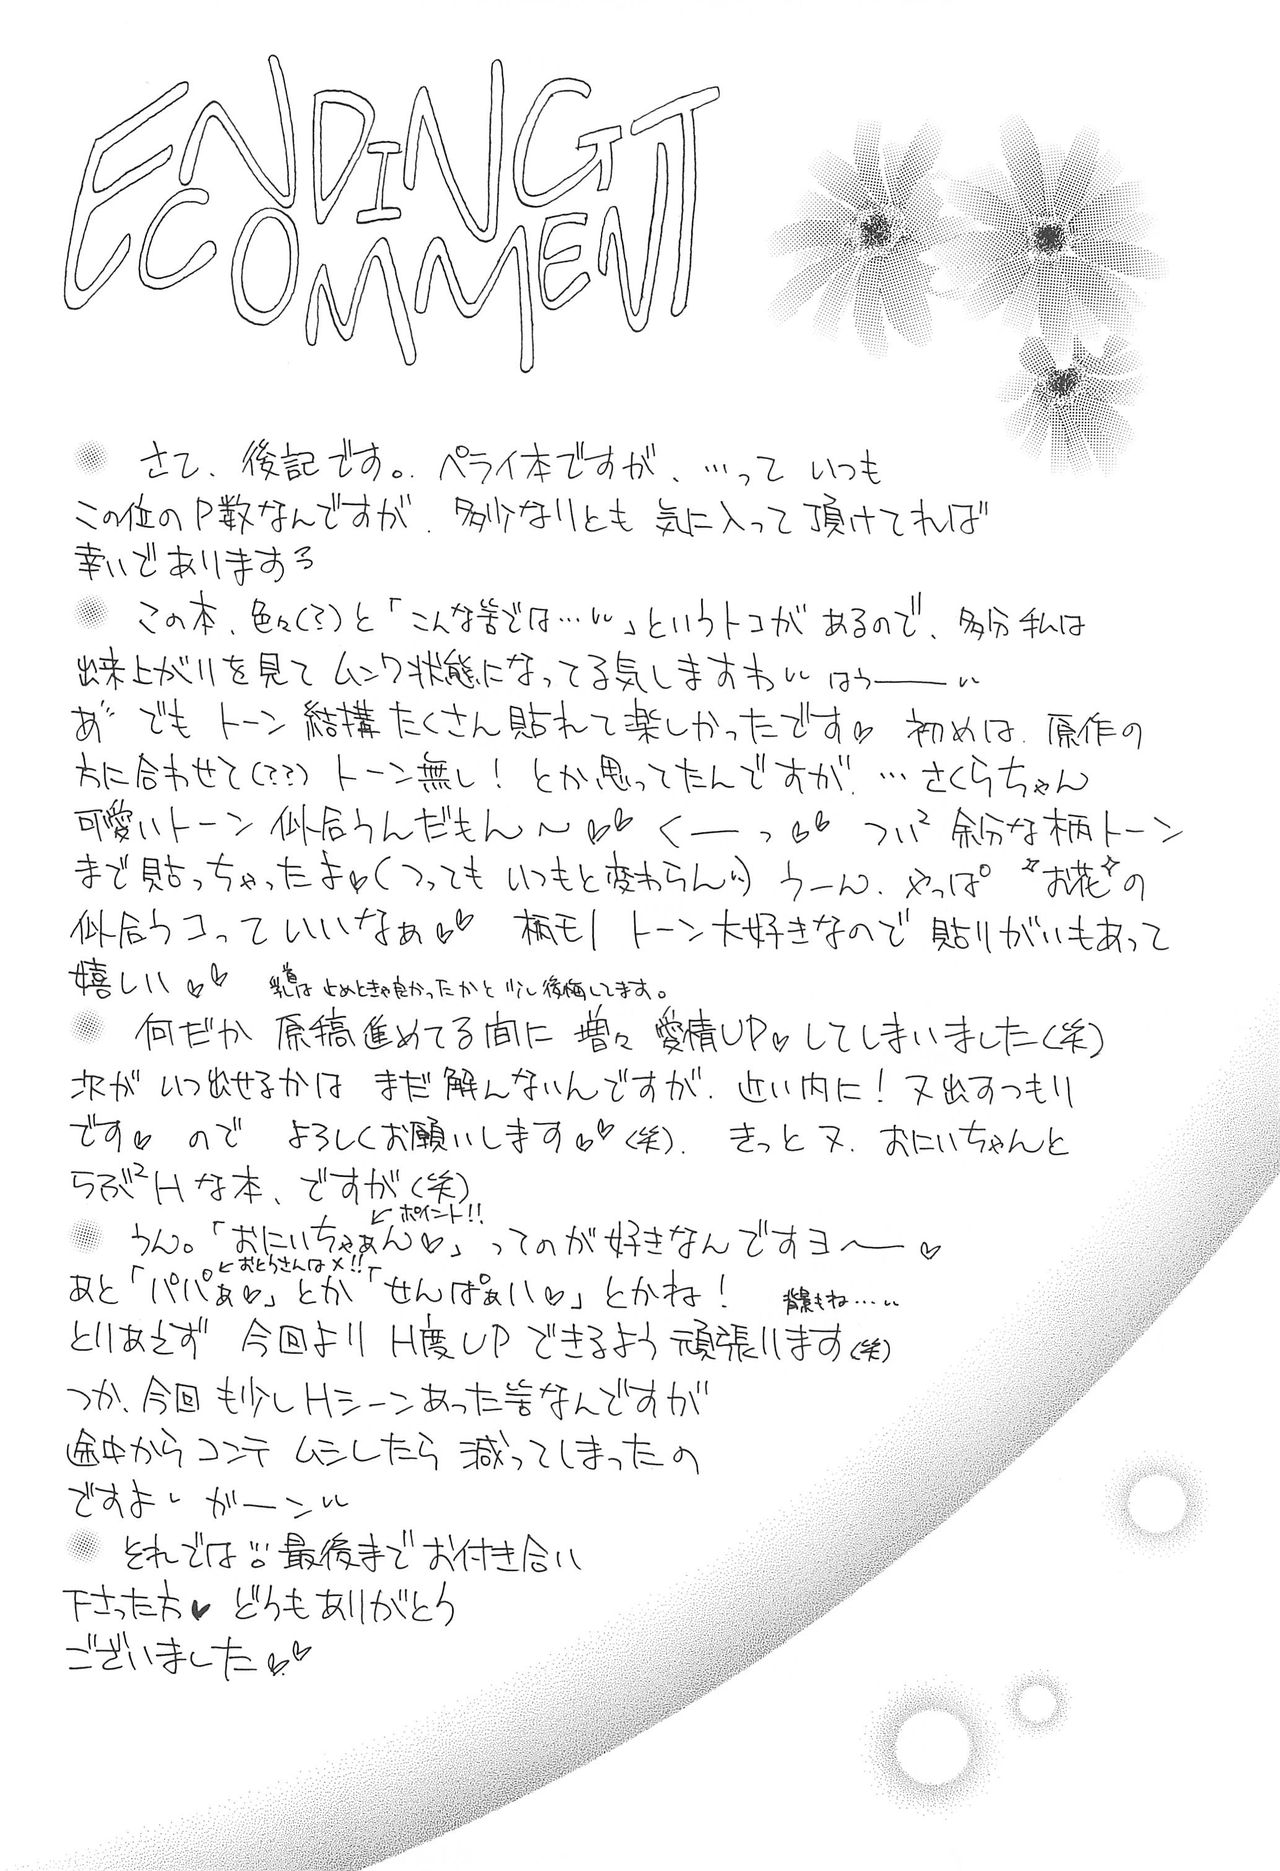 ENDING
COMMENT
さて、後記です。ペライ本ですが、…って いつも
この位のP数なんですが、多少なりとも 気に入って頂けてれば
幸いであります
この本、色々(?)と「こんな筈では…」というトコがあるので、多分私は
出来上がりを見て ムンク状態になってる気しますわ はうーー
あ" でも トーン 結構 たくさん貼れて楽しかったです♡ 初めは、原作の
方に合わせて(??) トーン無し! とか思ってたんですが、…さくらちゃん
可愛いトーン 似合うんだもん〜♡♡ くーっ♡♡ つい² 余分な柄トーン
まで貼っちゃったよ♡(つっても いつもと変わらん) うーん、やっぱ お花の
似合うコっていいなぁ♡♡ 柄モノ トーン大好きなので 貼りがいもあって
嬉しい♡♡ 乳首は 止めときゃ良かったかと 少し後悔してます。
何だか 原稿進めてる間に 増々 愛情UP♡してしまいました(笑)
次が いつ出せるかは まだ解んないんですが、近い内に! 又出すつもり
です♡ ので よろしくお願いします♡♡(笑)、 きっと又、おにいちゃんと
らぶ²Hな本、ですが(笑)
←ポイント!!
うん。「おにいちゃぁん♡」ってのが好きなんですヨ〜ー♡
←おとうさんは×!!
あと「パパぁ♡」とか「せんぱぁい♡」とかね! 背景もね…
とりあえず 今回より H度UP できるよう 頑張ります(笑)
つか、今回 も少しHシーンあった筈なんですが
途中からコンテ ムシしたら 減ってしまったの
ですよ がーン
それでは 最後までお付き合い
下さった方♥ どうもありがとう
ございました♡♡